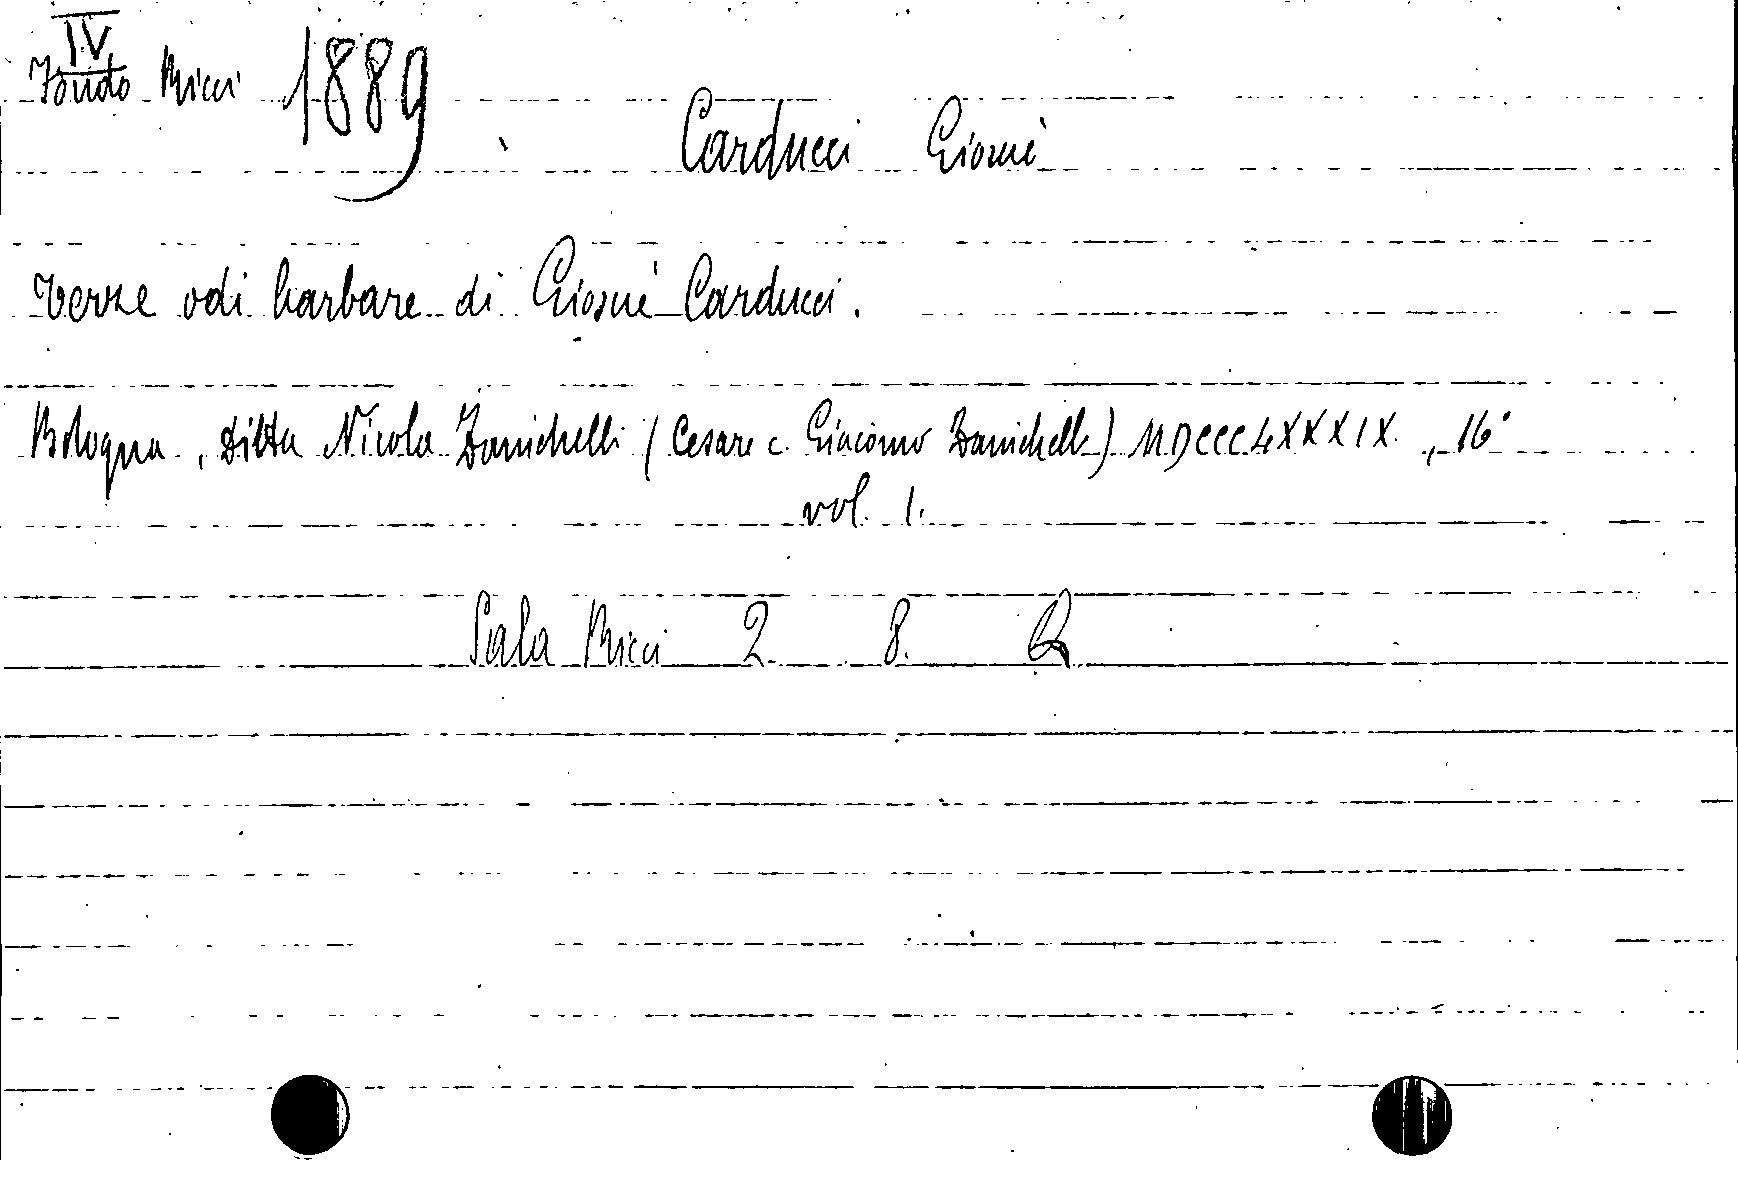 IV
Fondo Ricci 1889
Carducci Giosuè
Terze odi barbare di Giosuè Carducci.
Bologna, Ditta Nicola Zanichelli (Cesare e Giacomo Zanichelli) MDCCCLXXXIX, 16°
vol. 1.
Sala Ricci 2. 8. Q